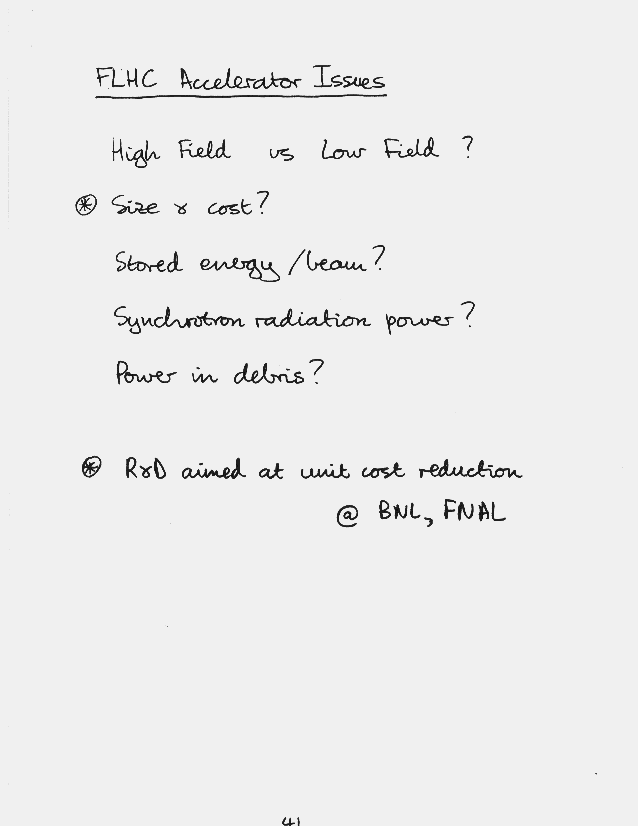 FLHC Accelerator Issues
High Field vs Low Field ?
⊛ Size & cost?
Stored energy/beam?
Synchrotron radiation power?
Power in debris?
⊛ R&D aimed at unit cost reduction
@ BNL, FNAL
41